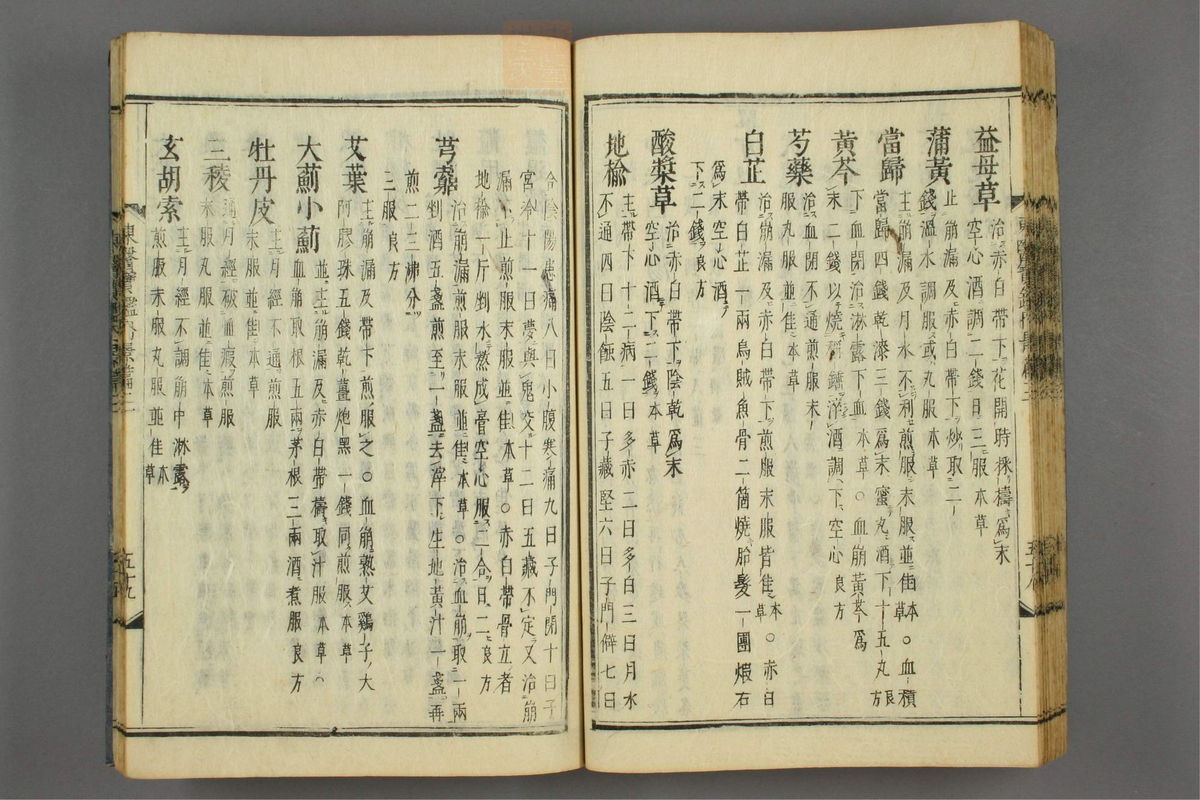 益母草
治赤白帶下花開時採擣爲末
空心酒調二錢日三服本草
蒲黃
止崩漏及赤白帶下炒取二
錢溫水調服或丸服本草
當歸
主崩漏及月水不利煎服末服並佳本草○血積
當歸四錢乾漆三錢爲末蜜丸酒下十五丸良方
黃芩
下血閉治淋露下血本草○血崩黃芩爲
末二錢以燒秤錘淬酒調下空心良方
芍藥
治血閉不通煎服末
服丸服並佳本草
白芷
治崩漏及赤白帶下煎服末服皆佳本草○赤白
帶白芷一兩烏賊魚骨二箇燒胎髮一團煆石
爲末空心酒
下二錢良方
酸漿草
治赤白帶下陰乾爲末
空心酒下二錢本草
地楡
主帶下十二病一日多赤二日多白三日月水
不通四日陰蝕五日子藏堅六日子門僻七日
合陰陽患痛八日小腹寒痛九日子門閉十日子
宮冷十一日夢與鬼交十二日五藏不定又治崩
漏不止煎服末服並佳本草○赤白帶骨立者
地楡一斤剉水熬成膏空心服二合日二良方
芎藭
治崩漏煎服末服並佳本草○治血崩取一兩
剉酒五盞煎至一盞去滓下生地黃汁一盞再
煎二三沸分
三服良方
艾葉
主崩漏及帶下煎服之○血崩熟艾鷄子大
阿膠珠五錢乾薑炮黑一錢同煎服本草
大薊小薊
並主崩漏及赤白帶擣取汁服本草○
血崩取根五兩茅根三兩酒煮服良方
牡丹皮
主月經不通煎服
末服並佳本草
三稜
通月經破血癥煎服
末服丸服並佳本草
玄胡索
主月經不調崩中淋露
煎服末服丸服並佳本草
東醫寶鑑內景篇三
五十九